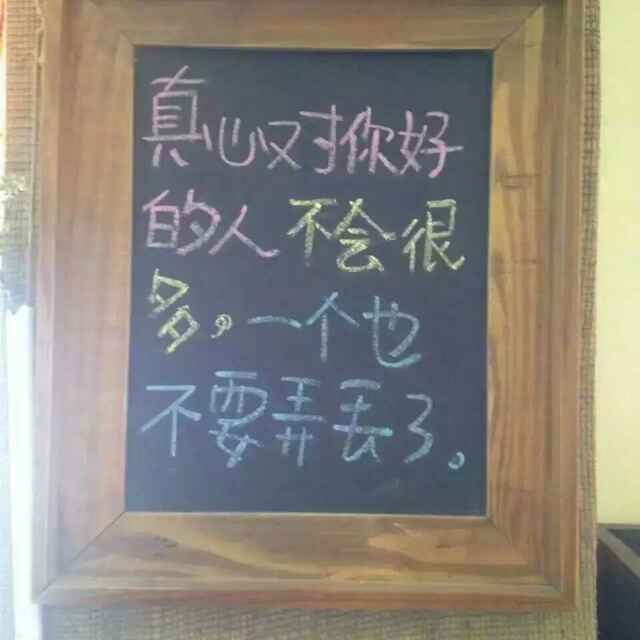 真心对你好
的人不会很
多。一个也
不要弄丢了。